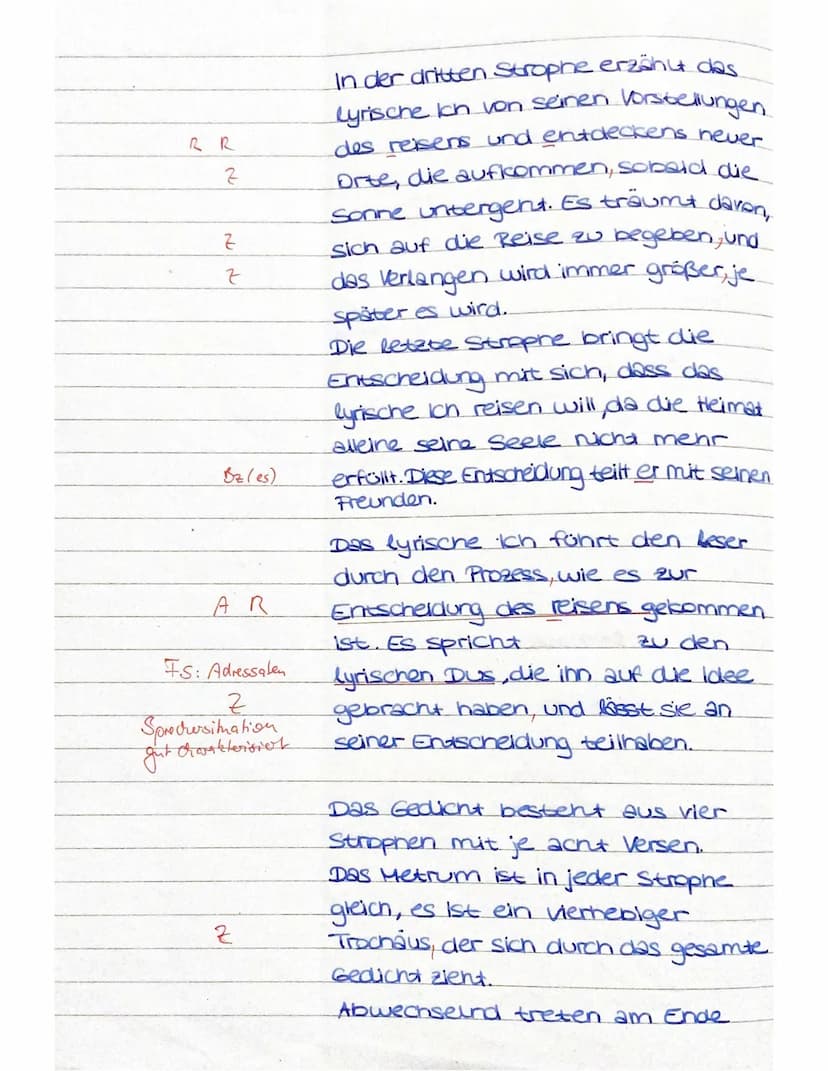 In der dritten Strophe erzählt das
lyrische Ich von seinen Vorstellungen
R R des reisens und entdeckens neuer
Z Orte, die aufkommen, sobald die
Sonne untergeht. Es träumt davon,
Z sich auf die Reise zu begeben, und
Z das Verlangen wird immer größer, je
später es wird.
Die letzte Strophe bringt die
Entscheidung mit sich, dass das
lyrische Ich reisen will, da die Heimat
alleine seine Seele nicht mehr
Bz (es) erfüllt. Diese Entscheidung teilt er mit seinen
Freunden.
Das lyrische Ich führt den Leser
durch den Prozess, wie es zur
A R Entscheidung des reisens gekommen
ist. Es spricht zu den
FS: Adressaten lyrischen Dus, die ihn auf die Idee
Z gebracht haben, und lässt sie an
Sprechersituation seiner Entscheidung teilhaben.
gut charakterisiert
Das Gedicht besteht aus vier
Strophen mit je acht Versen.
Das Metrum ist in jeder Strophe
gleich, es ist ein vierhebiger
Z Trochäus, der sich durch das gesamte
Gedicht zieht.
Abwechselnd treten am Ende